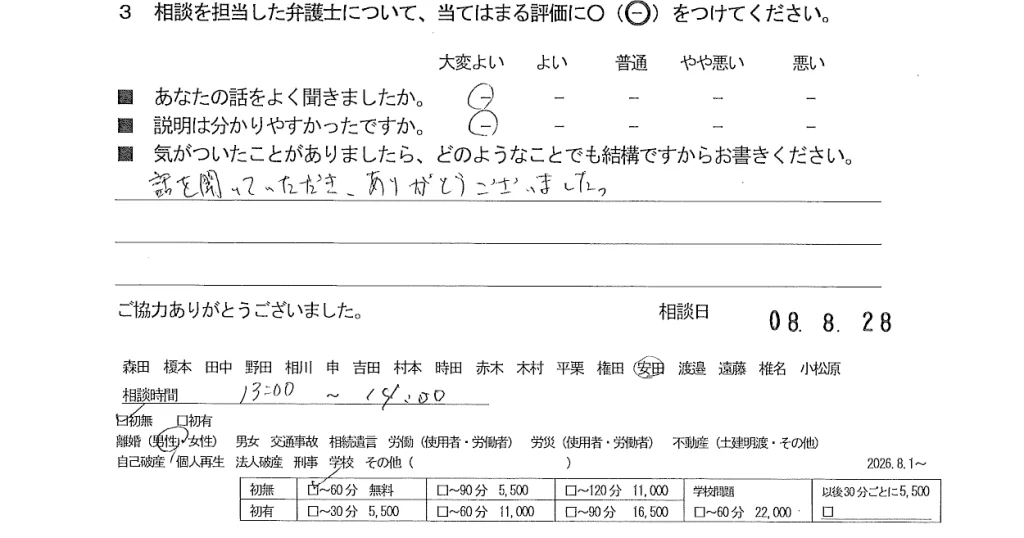 3 相談を担当した弁護士について、当てはまる評価に○（㊀）をつけてください。
大変よい よい 普通 やや悪い 悪い
■ あなたの話をよく聞きましたか。 － － － － －
■ 説明は分かりやすかったですか。 － － － － －
■ 気がついたことがありましたら、どのようなことでも結構ですからお書きください。
話を聞いていただき、ありがとうございました。
ご協力ありがとうございました。 相談日 08. 8. 28
森田 榎本 田中 野田 相川 申 吉田 村本 時田 赤木 木村 平栗 権田 安田 渡邉 遠藤 椎名 小松原
相談時間 13:00 ～ 14:00
☑初無 □初有
離婚（男性・女性） 男女 交通事故 相続遺言 労働（使用者・労働者） 労災（使用者・労働者） 不動産（土建明渡・その他）
自己破産 個人再生 法人破産 刑事 学校 その他（ ） 2026.8.1～
初無 ☑～60分 無料 □～90分 5,500 □～120分 11,000 学校問題 以後30分ごとに5,500
初有 □～30分 5,500 □～60分 11,000 □～90分 16,500 □～60分 22,000 □